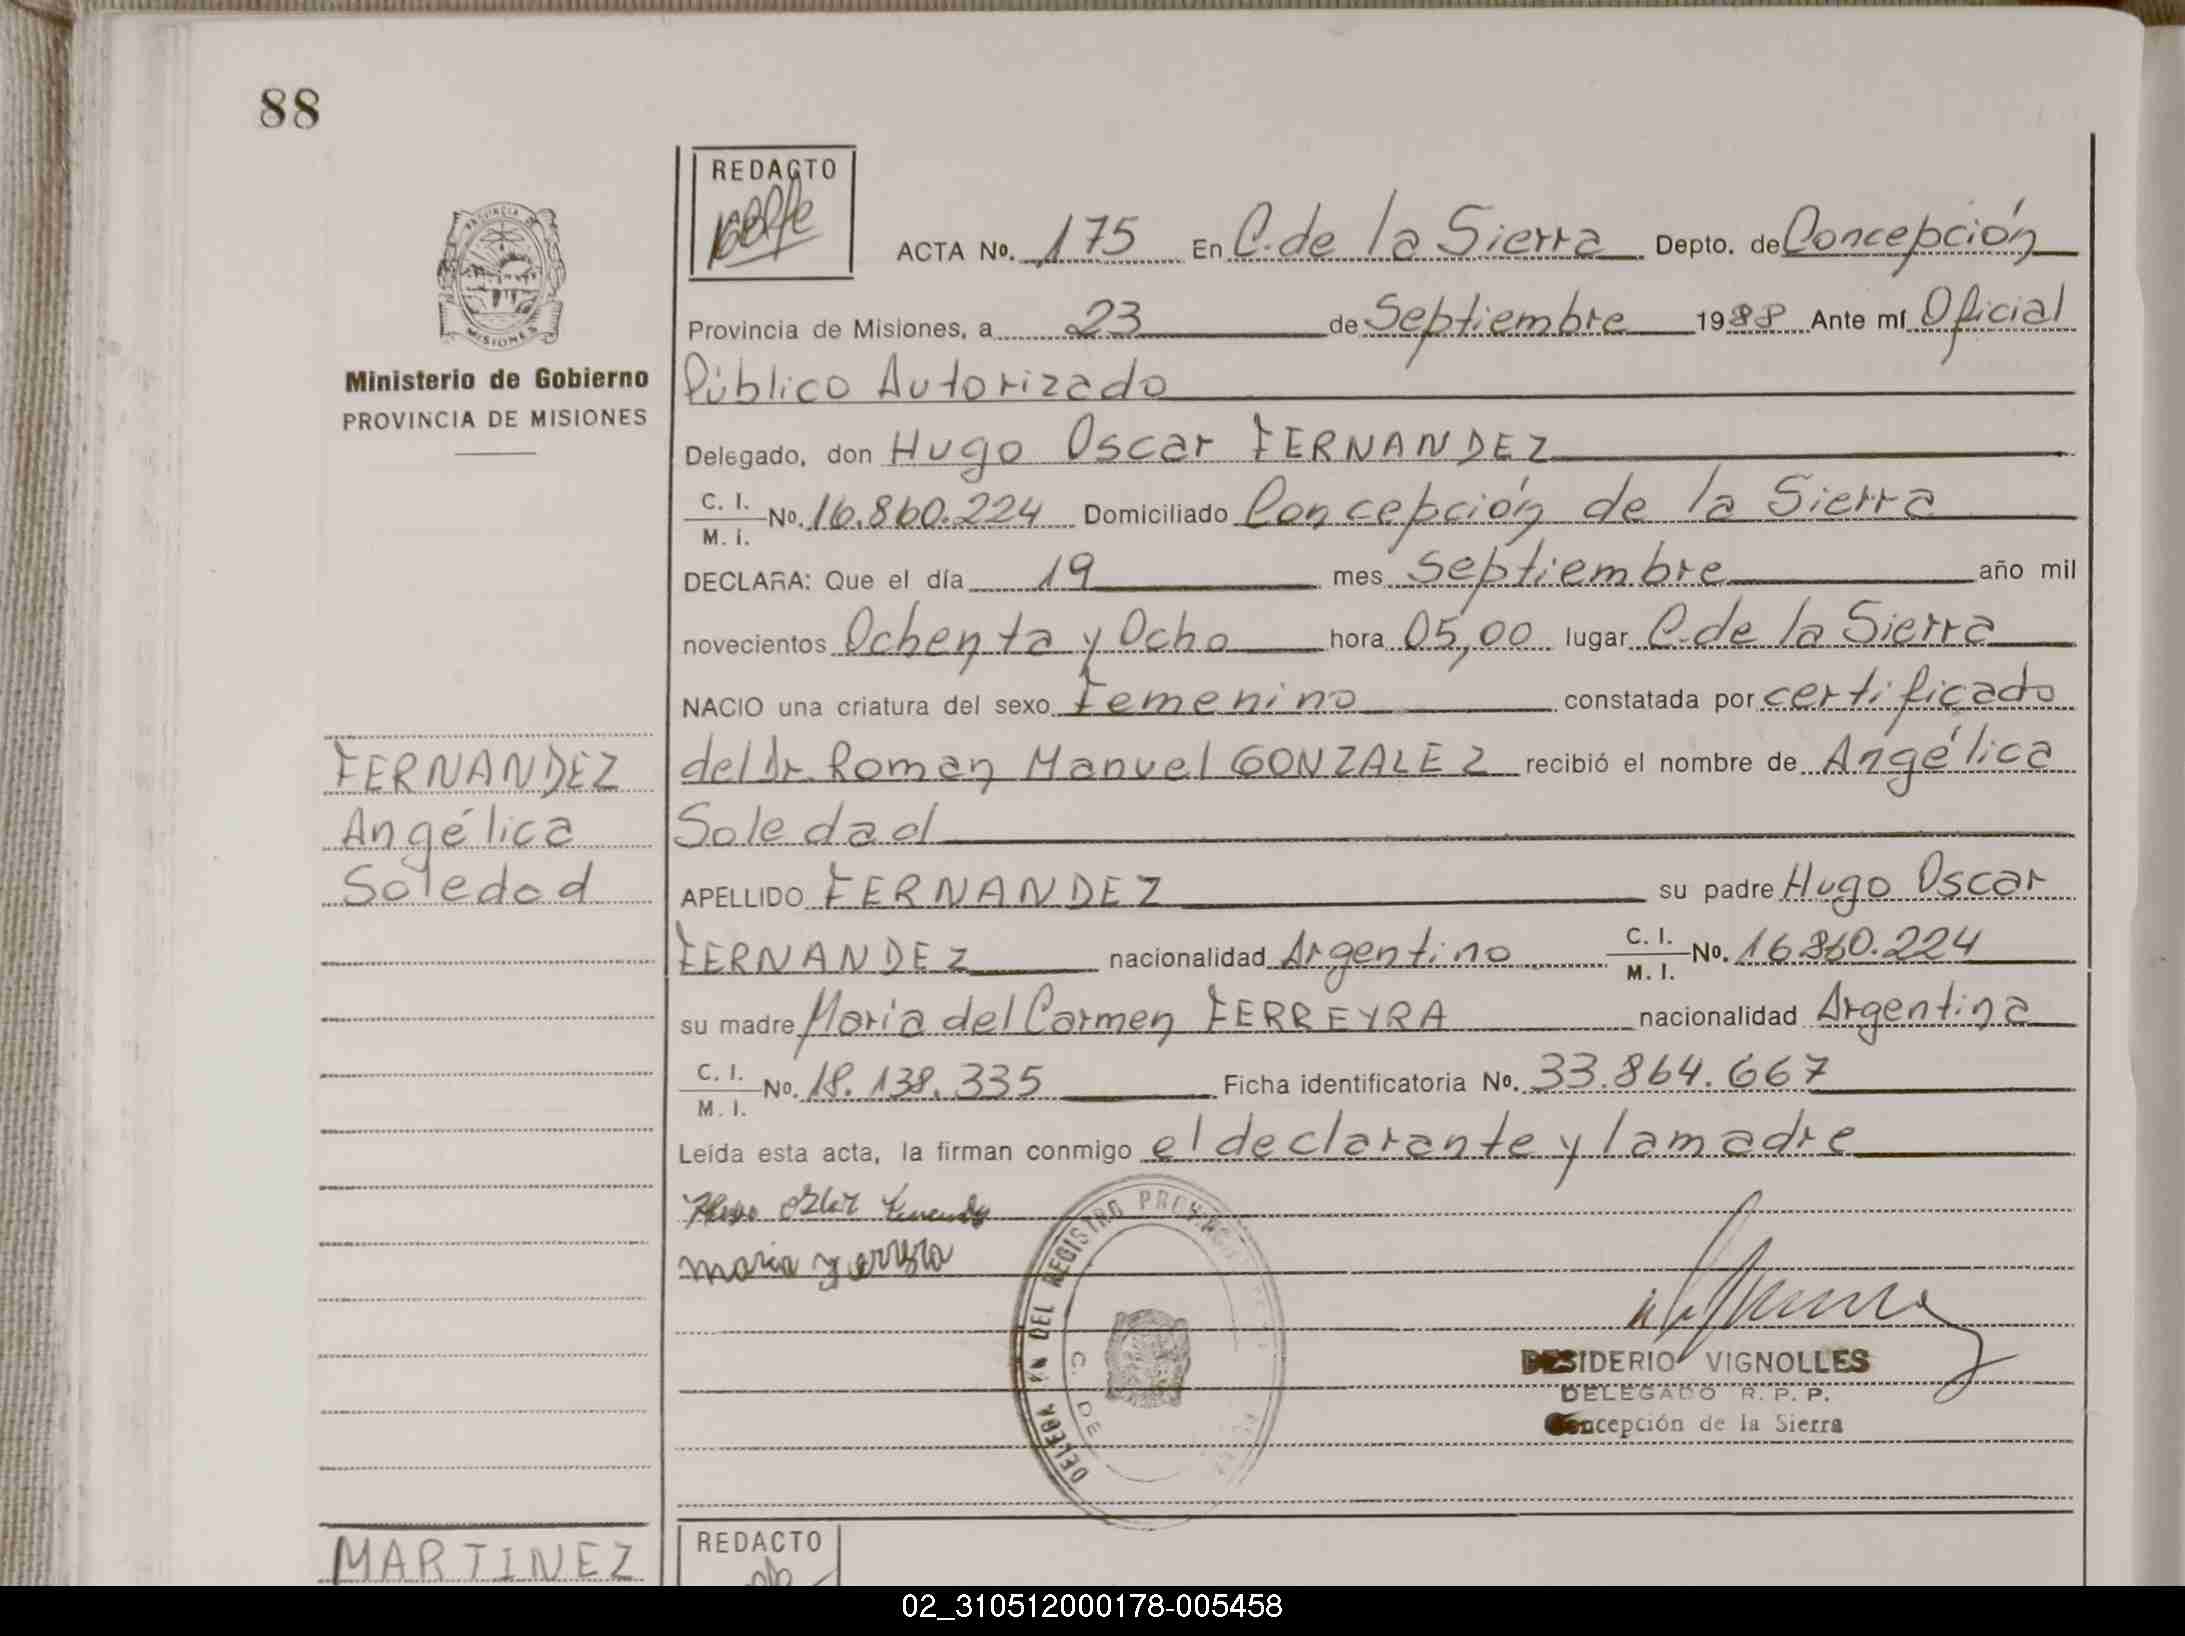 88
REDACTO
ACTA No. 175 En C. de la Sierra Depto. de Concepción
Provincia de Misiones, a 23 de Septiembre 1988 Ante mí Oficial
Público Autorizado
Delegado, don Hugo Oscar FERNANDEZ
C. I. M. I. No. 16.860.224 Domiciliado Concepción de la Sierra
DECLARA: Que el día 19 mes Septiembre año mil
novecientos Ochenta y Ocho hora 05,00 lugar C. de la Sierra
NACIO una criatura del sexo Femenino constatada por certificado
del Dr. Roman Manuel GONZALEZ recibió el nombre de Angélica
Soledad
APELLIDO FERNANDEZ su padre Hugo Oscar
FERNANDEZ nacionalidad Argentino C. I. M. I. No. 16.860.224
su madre Maria del Carmen FERREYRA nacionalidad Argentina
C. I. M. I. No. 18.138.335 Ficha identificatoria No. 33.864.667
Leída esta acta, la firman conmigo el declarante y la madre
PROVINCIA DE
MISIONES
Ministerio de Gobierno
PROVINCIA DE MISIONES
FERNANDEZ
Angélica
Soledad
Maria
DEL REGISTRO
C. DE
DESIDERIO VIGNOLLES
DELEGADO R. P. P.
Concepción de la Sierra
MARTINEZ
REDACTO
02_310512000178-005458